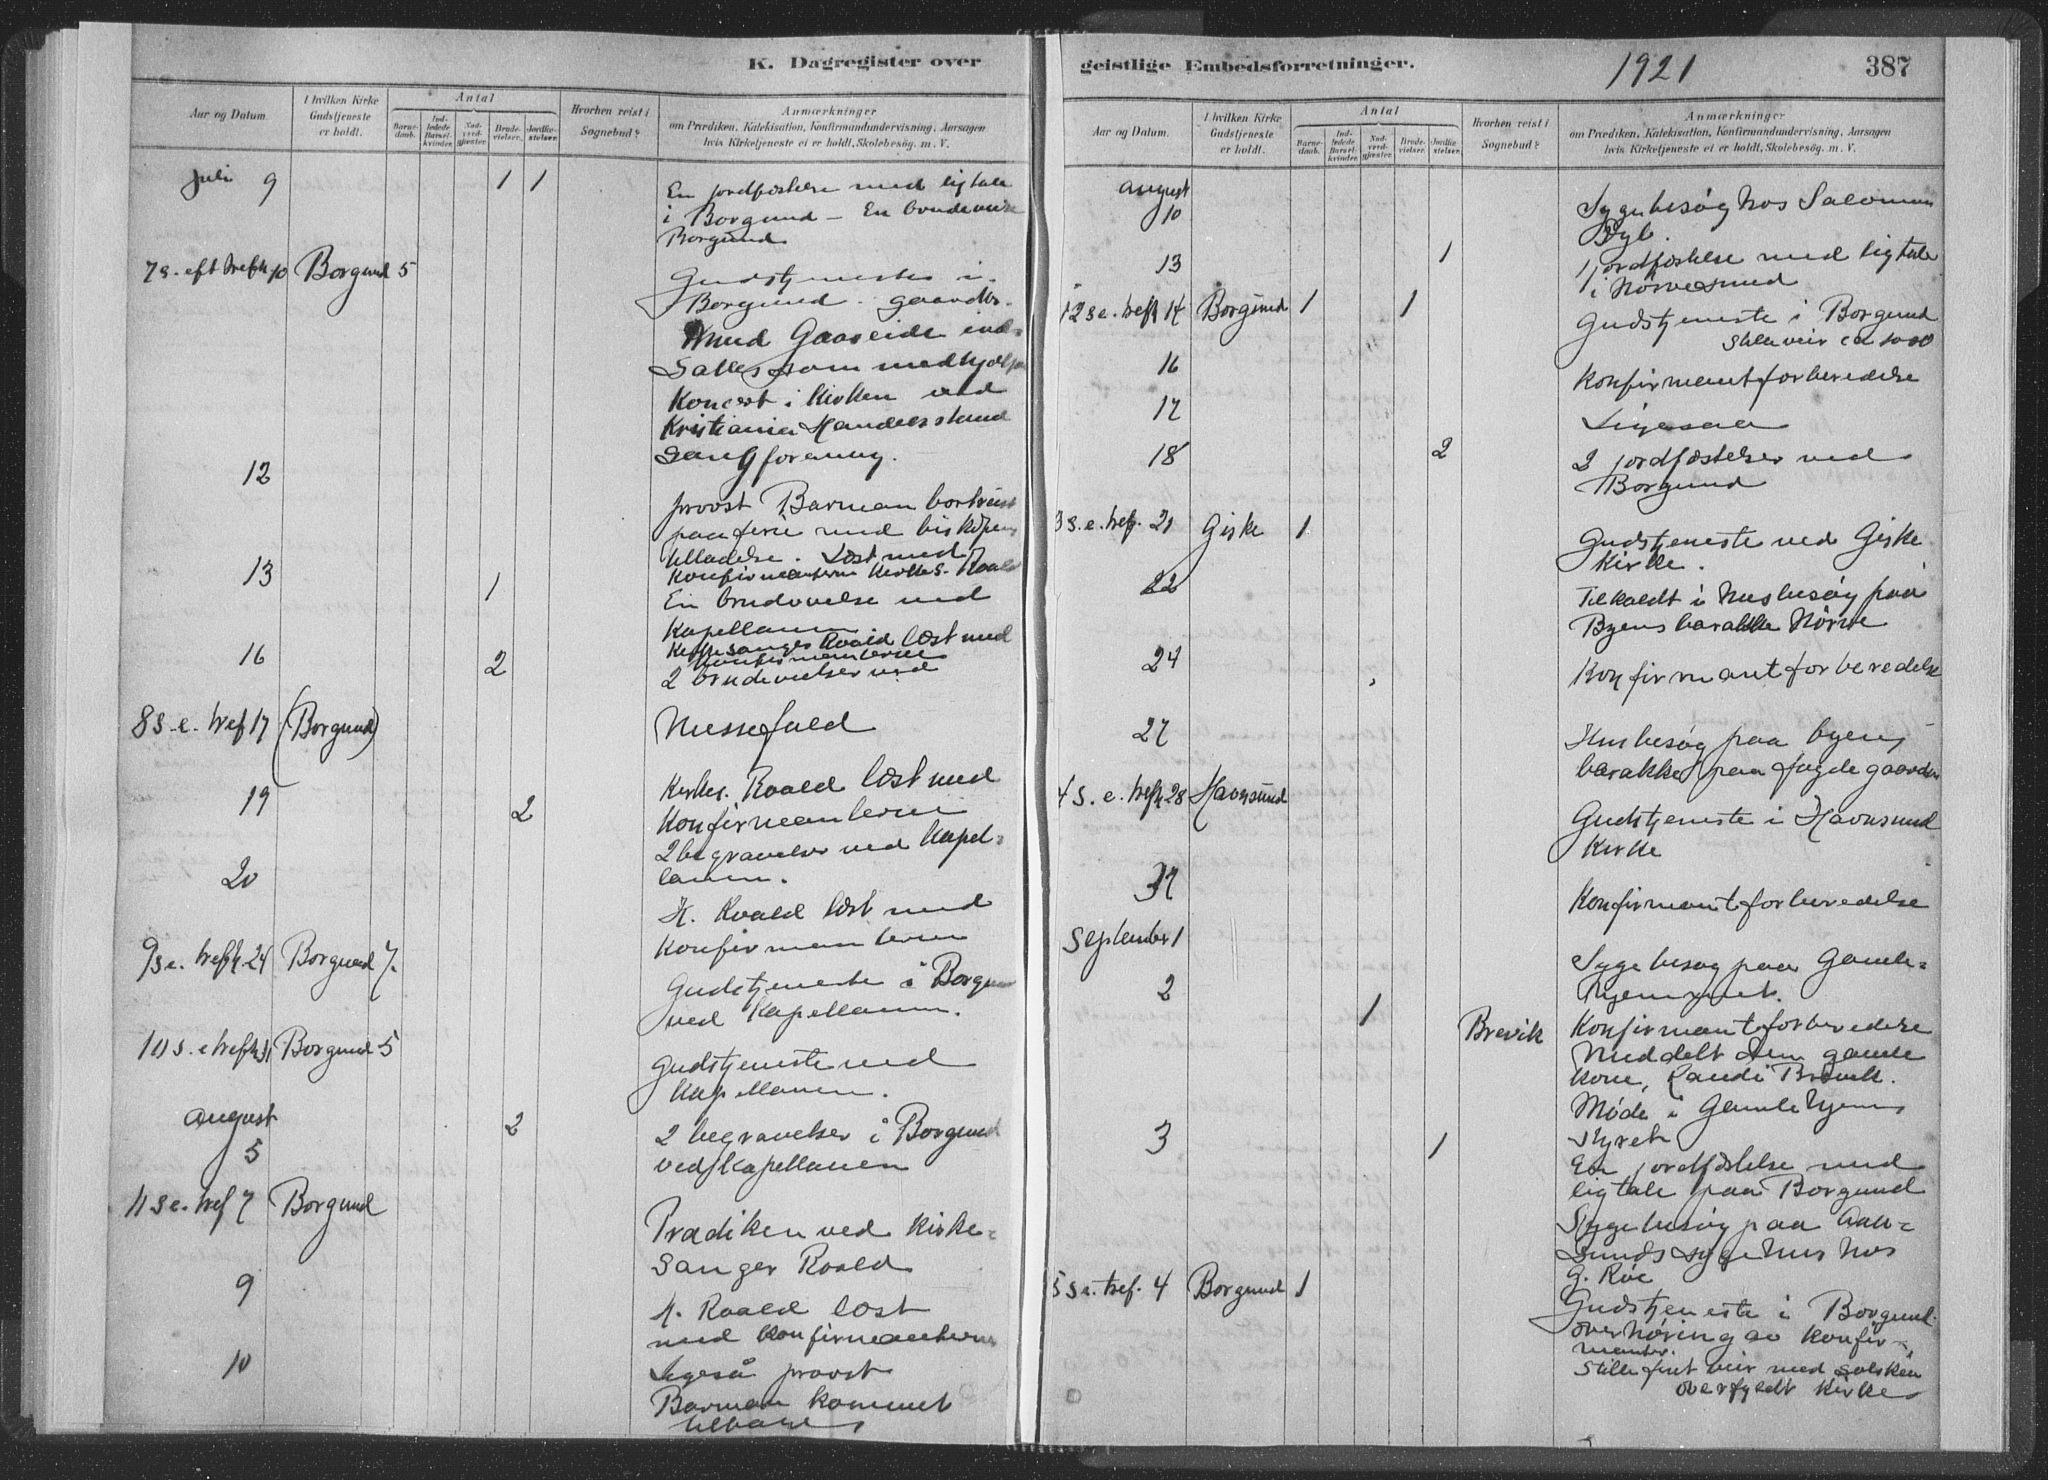 K. Dagregister over
Aar og Datum.
I hvilken Kirke Gudstjeneste er holdt.
Antal
Barnedaab.
Indledede Barselkvinder.
Nadverdgjester.
Brudevielser.
Jordfæstelser.
Hvorhen reist i Sognebud?
Anmærkninger
om Prædiken, Katekisation, Konfirmandundervisning, Aarsagen
hvis Kirketjeneste ei er holdt, Skolebesøg. m. V.
Juli 9 1 1 En jordfæstelse med ligtale
i Borgund – En brudevielse
Borgund
7 s. eft trefk 10 Borgund 5 Gudstjeneste i
Borgund. gaardbr.
Knud Gaaseide ind-
sattes som medhjælper
Koncert i kirken ved
Kristiania Handelsstand
Sangforening.
12 provst Barman bortreist
paa ferie med biskopens
tilladelse. Læst med
konfirmanterne Kirkes. Roald
13 1 En brudevielse ved
Kapellanen
Kirkesanger Roald læst med
konfirmanterne
16 2 2 brudevielser ved
8 s. e. tref 17 (Borgund) Messefald
19 2 Kirkes. Roald læst med
Konfirmanterne
2 begravelser ved kapel-
lanen.
20 K. Roald læst med
konfirmanterne
9 s e. trefk. 24 Borgund 7. Gudstjeneste i Borgund
ved Kapellanen.
10 s. e trefk 31 Borgund 5 Gudstjeneste ved
Kapellanen.
August
5 2 2 begravelser i Borgund
ved Kapellanen
11 s e. tref 7 Borgund Prædiken ved Kirke-
sanger Roald
9 K. Roald læst
med konfirmanterne
10 Ligeså provst
Barman kommet
tilbage
geistlige Embedsforretninger.
1921
387
Aar og Datum.
I hvilken Kirke Gudstjeneste er holdt.
Antal
Barnedaab.
Indledede Barselkvinder.
Nadverdgjester.
Brudevielser.
Jordfæstelser.
Hvorhen reist i Sognebud?
Anmærkninger
om Prædiken, Katekisation, Konfirmandundervisning, Aarsagen
hvis Kirketjeneste ei er holdt, Skolebesøg. m. V.
August
10 Sygebesøg hos Salomon
Dyb.
13 1 1 jordfæstelse med ligtale
i Nørvesund
12 s e. trefk 14 Borgund 1 1 Gudstjeneste i Borgund
16 Konfirmantforberedelse
17 Ligesaa
18 2 2 jordfæstelser ved
Borgund
3 s. e. tref. 21 Giske 1 Gudstjeneste ved Giske
Kirke.
22 Tilkaldt i husbesøg paa
Byens barakke Nørve
24 Konfirmantforberedelse
27 Husbesøg paa byens
barakker paa fogdegaarden
4 s. e. trefk 28 Havnsund Gudstjeneste i Havnsund
Kirke
31 Konfirmantforberedelse
September 1 Sygebesøg paa Gamle-
hjemmet.
2 1 Brevik Konfirmantforberedelse
Meddelt den gamle
kone, Randi Brevik.
Møde i Gamlehjems
styret
3 1 En jordfæstelse med
ligtale paa Borgund
Sygebesøg paa Aale-
sunds sygehus hos
G. Röe
5 s e. tref. 4 Borgund 1 Gudstjeneste i Borgund.
overhøring av konfir-
manter.
Stille fint veir med solskin
overfyldt Kirke